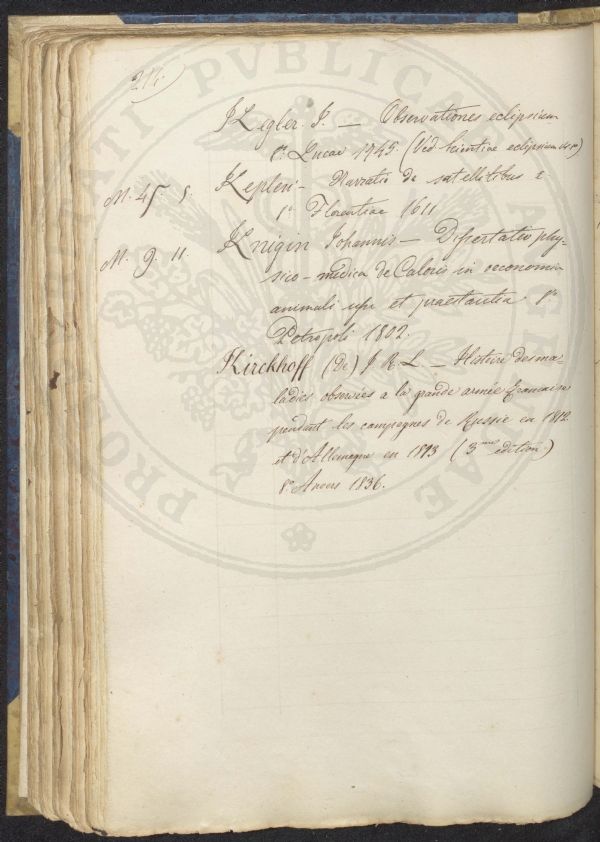 214
Kegler. I. — Observationes eclipsium
8.° Lucae 1745. (Ved. Scientiae eclipsium &c)
M. 45. 5. Kepleri — Narratio de satellitibus &
4.° Florentiae 1611
M. 9. 11. Knigin Johannis — Dissertatio phy-
sico-medica de Caloris in oeconomia
animali usu et praestantia 8.°
Petropoli 1802.
Kirckhoff (De) J. R. L. — Histoire des ma-
ladies observées a la grande armée française
pendant les campagnes de Russie en 1812
et d'Allemagne en 1813 (3me edition)
8.° Anvers 1836.
PROSPERITATI PUBLICAE